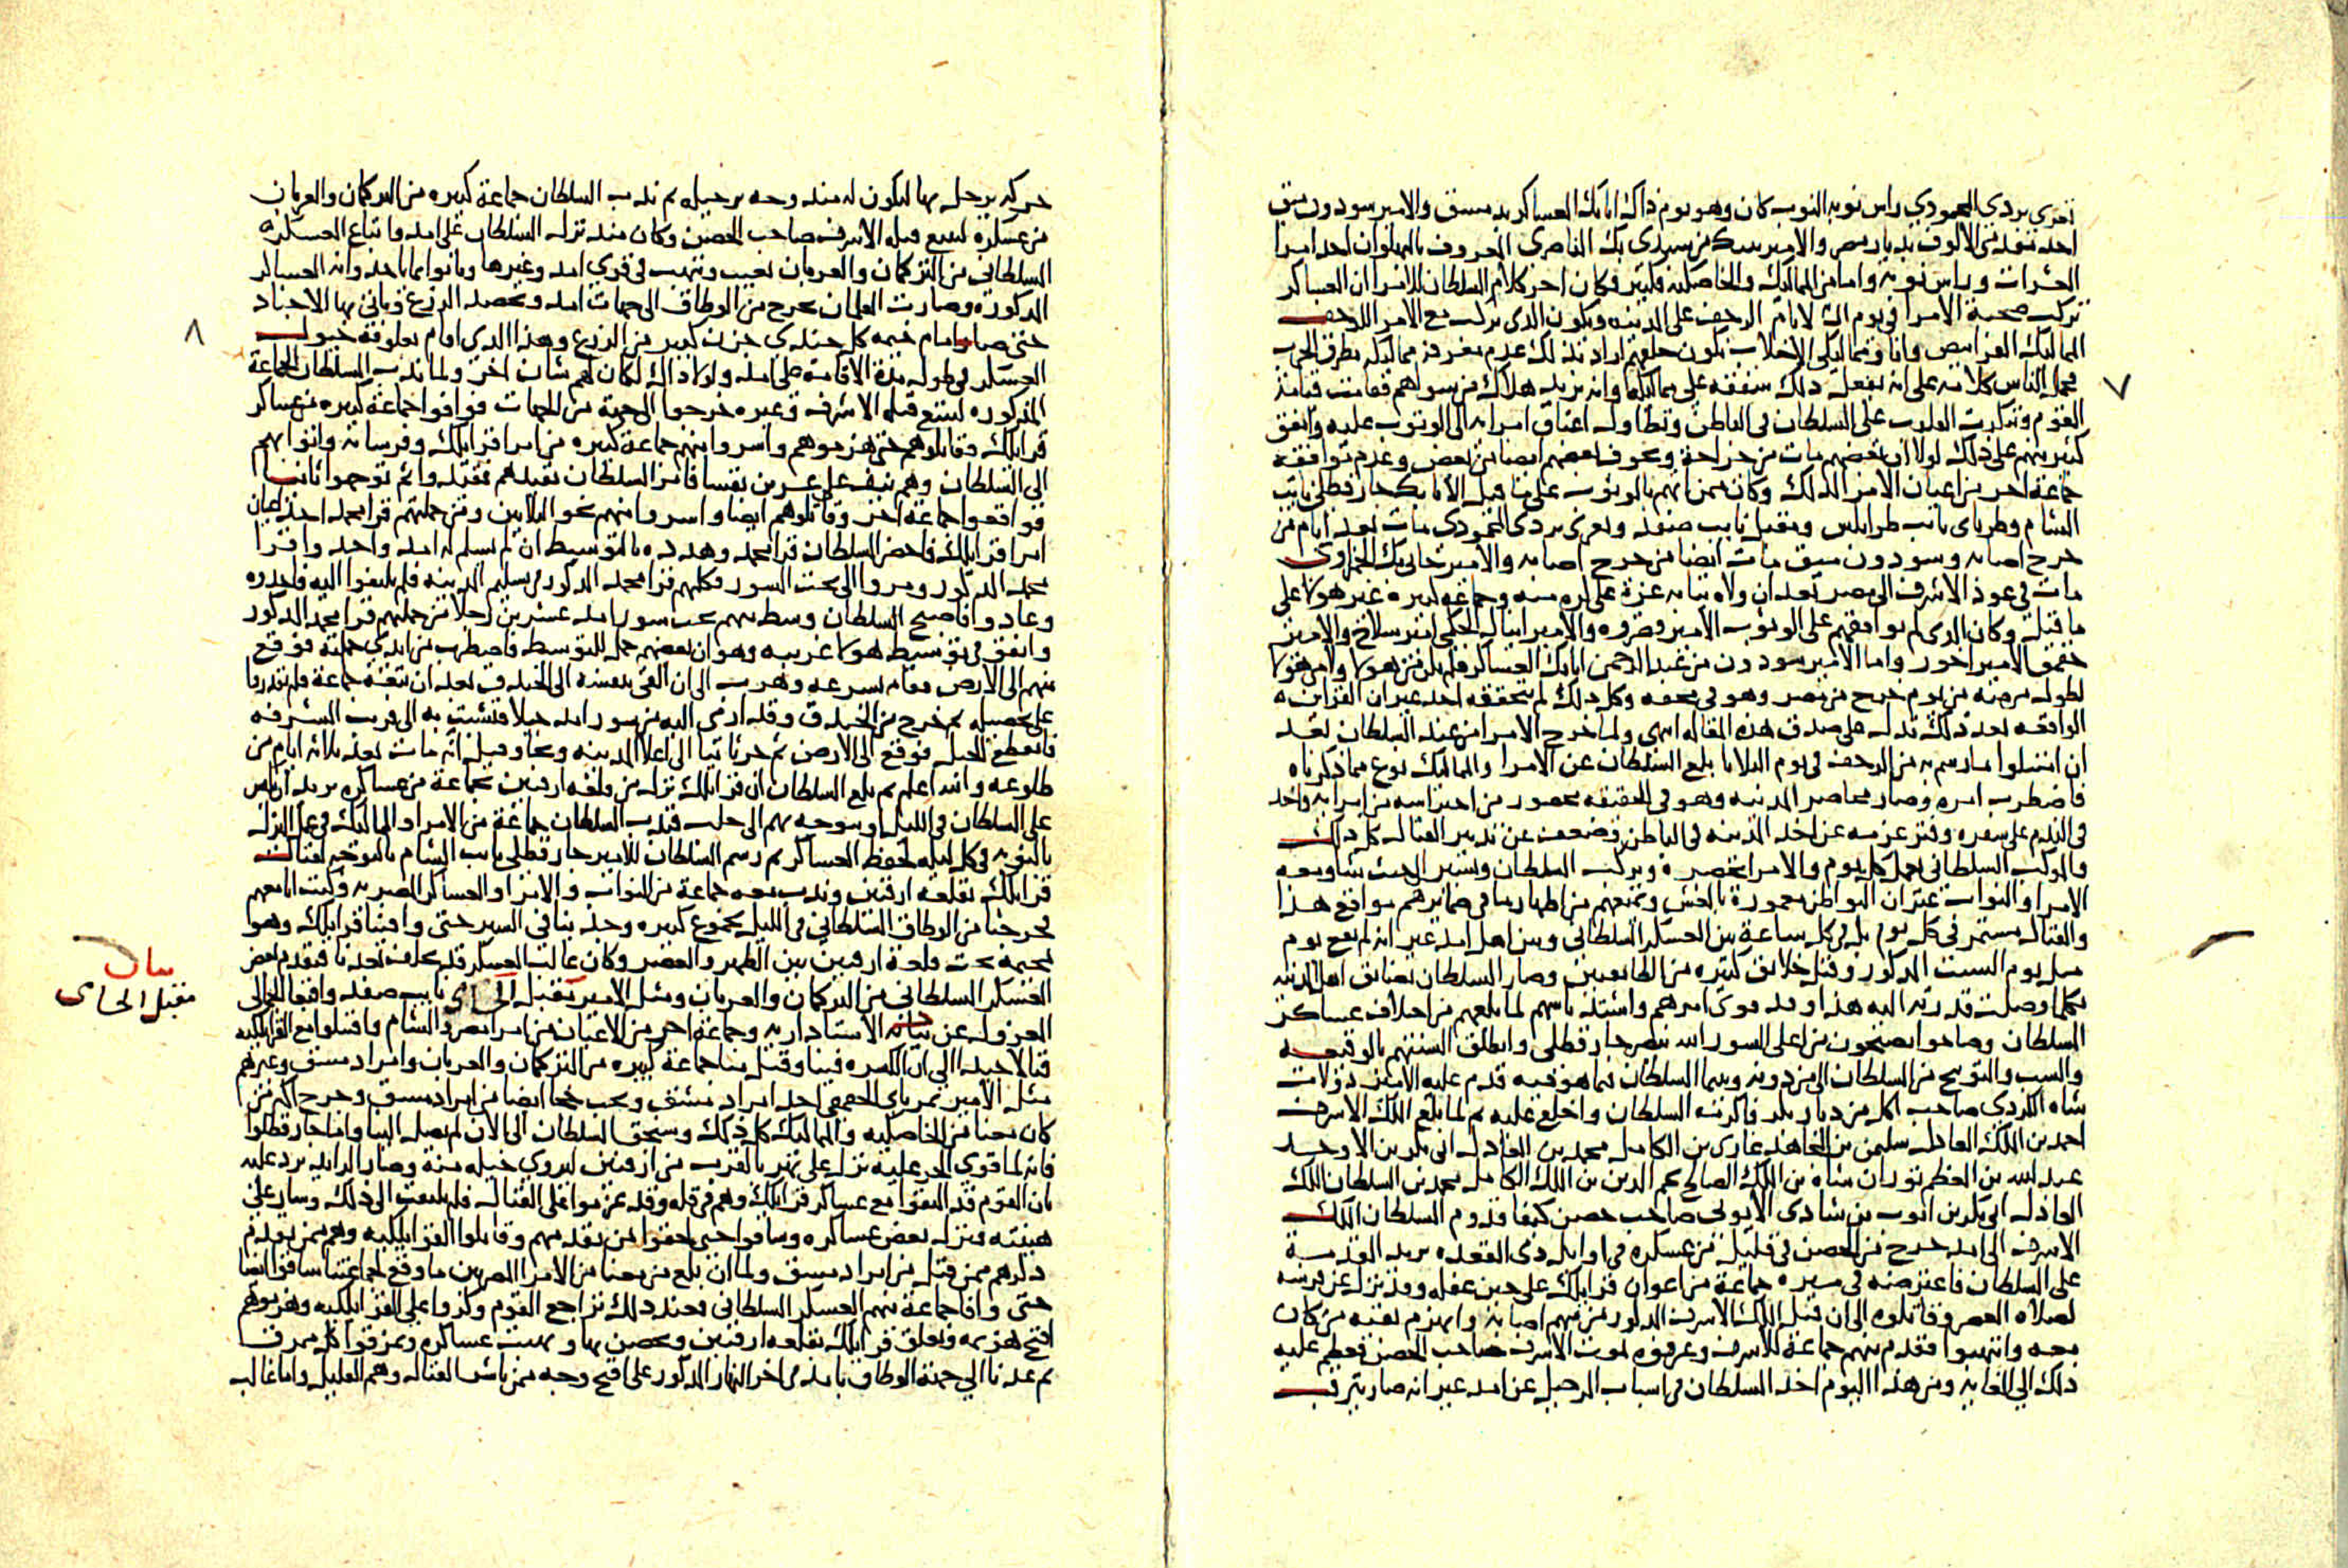 تغرى بردى المحمودي راس نوبة النوب كان وهو يوم ذاك اتابك العساكر بدمشق والامير سودون ميق
احد مقدمى الالوف بديار مصر والامير بيبك من سيدى بك الناصرى المعروف بالبهلوان احد امرا
العشرات وراس نوبة واما من المماليك والخاصكية فكثير فكان اخر كلام السلطان للامرا ان العساكر
تركب صحبة الامرا فى يوم الثلاثا الزحف على المدينة ويكون الذى يركب مع الامرا للزحف
المماليك القرانيص وانا ومماليكى الاجلاب نكون خلفهم اراد بذلك عدم معرفة مماليكه بطرق الحرب
فحمل الناس كلامه على انه يفعل ذلك شفقة على مماليكه وانه يريد هلاك من سواهم فقامت قيامة
القوم وتنكرت القلوب على السلطان فى الباطن وتطاولت اعناق امرائه الى الوثوب عليه واتفق
كثير منهم على ذلك لولا ان بعضهم مات من جراحه وتخوف بعضهم ايضا من بعض وعدم موافقة
جماعة اخر من اعيان الامرا لذلك وكان ممن اتهم بالوثوب على ما قيل الاتابك جارقطلى نايب
الشام وطرباى نايب طرابلس ومقبل نايب صفد وتغرى بردى المحمودى مات بعد ايام من
جرح اصابه وسودون ميق مات ايضا من جرح اصابه والامير جانى بك الحمزاوى
مات فى عود الاشرف الى مصر بعد ان ولاه نيابة غزة على كره منه وجماعة كثيرة غير هولا على
ما قيل وكان الذى لم يوافقهم على الوثوب الامير قصروه والامير اينال الجكمى امير سلاح والامير
جقمق الامير اخور واما الامير سودون من عبد الرحمن اتابك العساكر فلم يكن من هولا ولا من هولا
لطول مرضه من يوم خرج من مصر وهو فى محفة وكل ذلك لم يتحققه احد غير ان القراين
الواقعة بعد ذلك تدل على صدق هذه المقالة انتهى ولما خرج الامرا من عند السلطان بعد
ان امتثلوا ما رسم به من الزحف فى يوم الثلاثا بلغ السلطان عن الامرا والمماليك نوع مما ذكرناه
فاضطرب امره وصار يحاصر المدينة وهو فى الحقيقة محصور من احتراسه من امرائه واخذ
فى الندم على سفره وفتر عزمه عن اخذ المدينة فى الباطن وضعف عن تدبير القتال كل ذلك
والموكب السلطانى يعمل كل يوم والامرا تحضره ويركب السلطان ويسير الى حيث شا ومعه
الامرا والنواب غير ان البواطن معمورة بالغش ويمنعهم من اظهار ما فى ضمايرهم موانع هذا
والقتال مستمر فى كل يوم بل فى كل ساعة بين العسكر السلطانى وبين اهل امد غير انه لم يقع يوم
مثل يوم السبت المذكور وقتل خلايق كثيره من الطايفتين وصار السلطان يضايق اهل المدينة
بكلما وصلت قدرته اليه هذا وقد قوى امرهم واشتد باسهم لما بلغهم من اختلاف عساكر
السلطان وصاحوا يصيحون من اعلى السور الله ينصر جارقطلى وانطلق السنتهم بالوقيعة
والسب والتوبيخ من السلطان الى من دونه وبينما السلطان فيما هو فيه قدم عليه الامير دولات
شاه الكردى صاحب اكل من ديار بكر فاكرمه السلطان واخلع عليه ثم لما بلغ الملك الاشرف
احمد بن الملك العادل سليمن بن المجاهد غازى بن الكامل محمد بن العادل ابى بكر بن الاوحد
عبد الله بن المعظم توران شاه بن الملك الصالح نجم الدين بن الملك الكامل محمد بن السلطان الملك
العادل ابى بكر بن ايوب بن شادى الايوبى صاحب حصن كيفا قدوم السلطان الملك
الاشرف الى امد خرج من الحصن فى قليل من عسكره فى اوايل ذى القعده يريد القدمة
على السلطان فاعترضه فى مسيره جماعة من اعوان قرايلك على حين غفلة وقد نزل عن فرسه
لصلاة العصر وقاتلوه الى ان قتل الملك الاشرف المذكور من سهم اصابه وانهزم بقية من كان
معه وانتهبوا فقدم منهم جماعة للاشرف وعرفوه بموت الاشرف صاحب الحصن فعظم عليه
ذلك الى الغاية ومن هذا اليوم اخذ السلطان فى اسباب الرحيل عن امد غير انه صار يترقب
٧
حركه يرحل بها ليكون له مندوحه برحيله ثم ندب السلطان جماعة كبيره من التركمان والعربان
من عسكره لتتبع قتلة الاشرف صاحب الحصن وكان منذ نزل السلطان على امد واتباع العسكر
السلطانى من التركمان والعربان تعيث وتنهب فى قرى امد وغيرها وياتوا بما ياخذوانه العساكر
المذكورة وصارت الغلمان تخرج من الوطاق الى جهات امد وتحصد الزرع وياتى بها الاجناد
حتى صار امام خيمة كل جندى جرن كبير من الزرع وهذا الذى اقام بعلوفة خيول
العسكر فى طول مدة الاقامة على امد ولولا ذاك لكان لهم شان اخر ولما ندب السلطان الجماعة
المذكوره لتتبع قتلة الاشرف وغيره خرجوا الى جهة من الجهات فوافوا جماعة كبيره من عساكر
قرايلك وقاتلوهم حتى هزموهم واسروا منهم جماعة كبيره من امرا قرايلك وفرسانه واتوا بهم
الى السلطان وهم نيف على عشرين نفسا فامر السلطان بقيدهم فقيدوا ثم توجهوا ثانيا
فواقعوا جماعة اخر وقاتلوهم ايضا واسروا منهم نحو الثلاثين ومن جملتهم قرا محمد احد اعيان
امرا قرايلك فاحضر السلطان قرا محمد وهدده بالتوسيط ان لم يسلم له امد واحد واقرا
محمد المذكور ومروا الى تحت السور فكلمهم قرا محمد المذكور فى تسليم المدينة فلم يلتفتوا اليه فاخذوه
وعادوا فاصبح السلطان وسط منهم تحت سور امد عشرين رجلا من جملتهم قرا محمد المذكور
واتفق فى توسيط هولا غريبه وهو ان بعضهم حمل للتوسيط فاضطرب من ايدى حملته فوقع
منهم الى الارض فقام بسرعه وهرب الى ان القى بنفسه الى الخندق بعد ان تبعه جماعة فلم يقدروا
على تحصيله ثم خرج من الخندق وقد ارخى اليه من سور امد حبلا وتشبث به الى قريب الشرفه
فانقطع الحبل فوقع الى الارض ثم جر ثانيا الى اعلا المدينه ونجا وقيل انه مات بعد ثلاثه ايام من
طلوعه والله اعلم ثم بلغ السلطان ان قرايلك نزل من قلعة ارقنين بجماعة من عساكره يريد يكبس
على السلطان فى الليل او يتوجه بهم الى حلب فندب السلطان جماعة من الامرا والمماليك فى عمل اليزك
بالنوبه فى كل ليلة لحفظ العساكر ثم رسم السلطان للامير جارقطلى نايب الشام بالتوجه لقتال
قرايلك بقلعة ارقنين وندب معه جماعة من النواب والامرا والعساكر المصريه وكنت انا معهم
فخرجنا من الوطاق السلطانى فى الليل بجموع كبيره وجد بنا فى السير حتى وافينا قرايلك وهو
بمخيمه تحت قلعة ارقنين بين الظهر والعصر وكان غالب العسكر قد تخلف بعدنا فتقدم بعض
العسكر السلطانى من التركمان والعربان ومثل الامير مقبل نايب صفد واقبغا الجمالى
المعزول عن الاستادارية وجماعة اخر من الاعيان من امرا مصر والشام واقتتلوا مع القرايلكيه
قتالا جيدا الى ان الكسره فينا وقتل منا جماعة كبيره من التركمان والعربان وامرا دمشق وغيرهم
مثل الامير تمرباى الجقمقى احد امرا دمشق ايضا من امرا دمشق وجرح اكثر من
كان معنا من الخاصكيه والمماليك كل ذلك وسنجق السلطان الى الان لم يصل الينا واما جارقطلوا
فانه لما قوى الحر عليه نزل على نهر بالقرب من ارقنين ليروى خيله منه وصار الرايد يرد عليه
بان القوم قد التقوا مع عساكر قرايلك وهم فى قله وقد عزموا على القتال فلم يلتفت الى ذلك وسار على
هينته ونزل بعض عساكره وساقوا حتى لحقوا من تقدمهم وقاتلوا القرايلكيه وهم ممن تقدم
ذكرهم ممن قتل من امرا دمشق ولما ان بلغ من معنا من الامرا المصريين ما وقع لجماعتنا ساقوا ايضا
حتى وافا جماعة منهم العسكر السلطانى فعند ذلك تراجع القوم وكروا على القرايلكيه وهزموهم
اقبح هزيمه وتعلق قرايلك بقلعة ارقنين وتحصن بها ونهبت عساكره وتمزقوا كل ممزق
ثم عدنا الى جهة الوطاق بامد فى اخر النهار المذكور على اقبح وجه ممن باشر القتال وهم القليل واما غالب
٨
بيان
مقبل